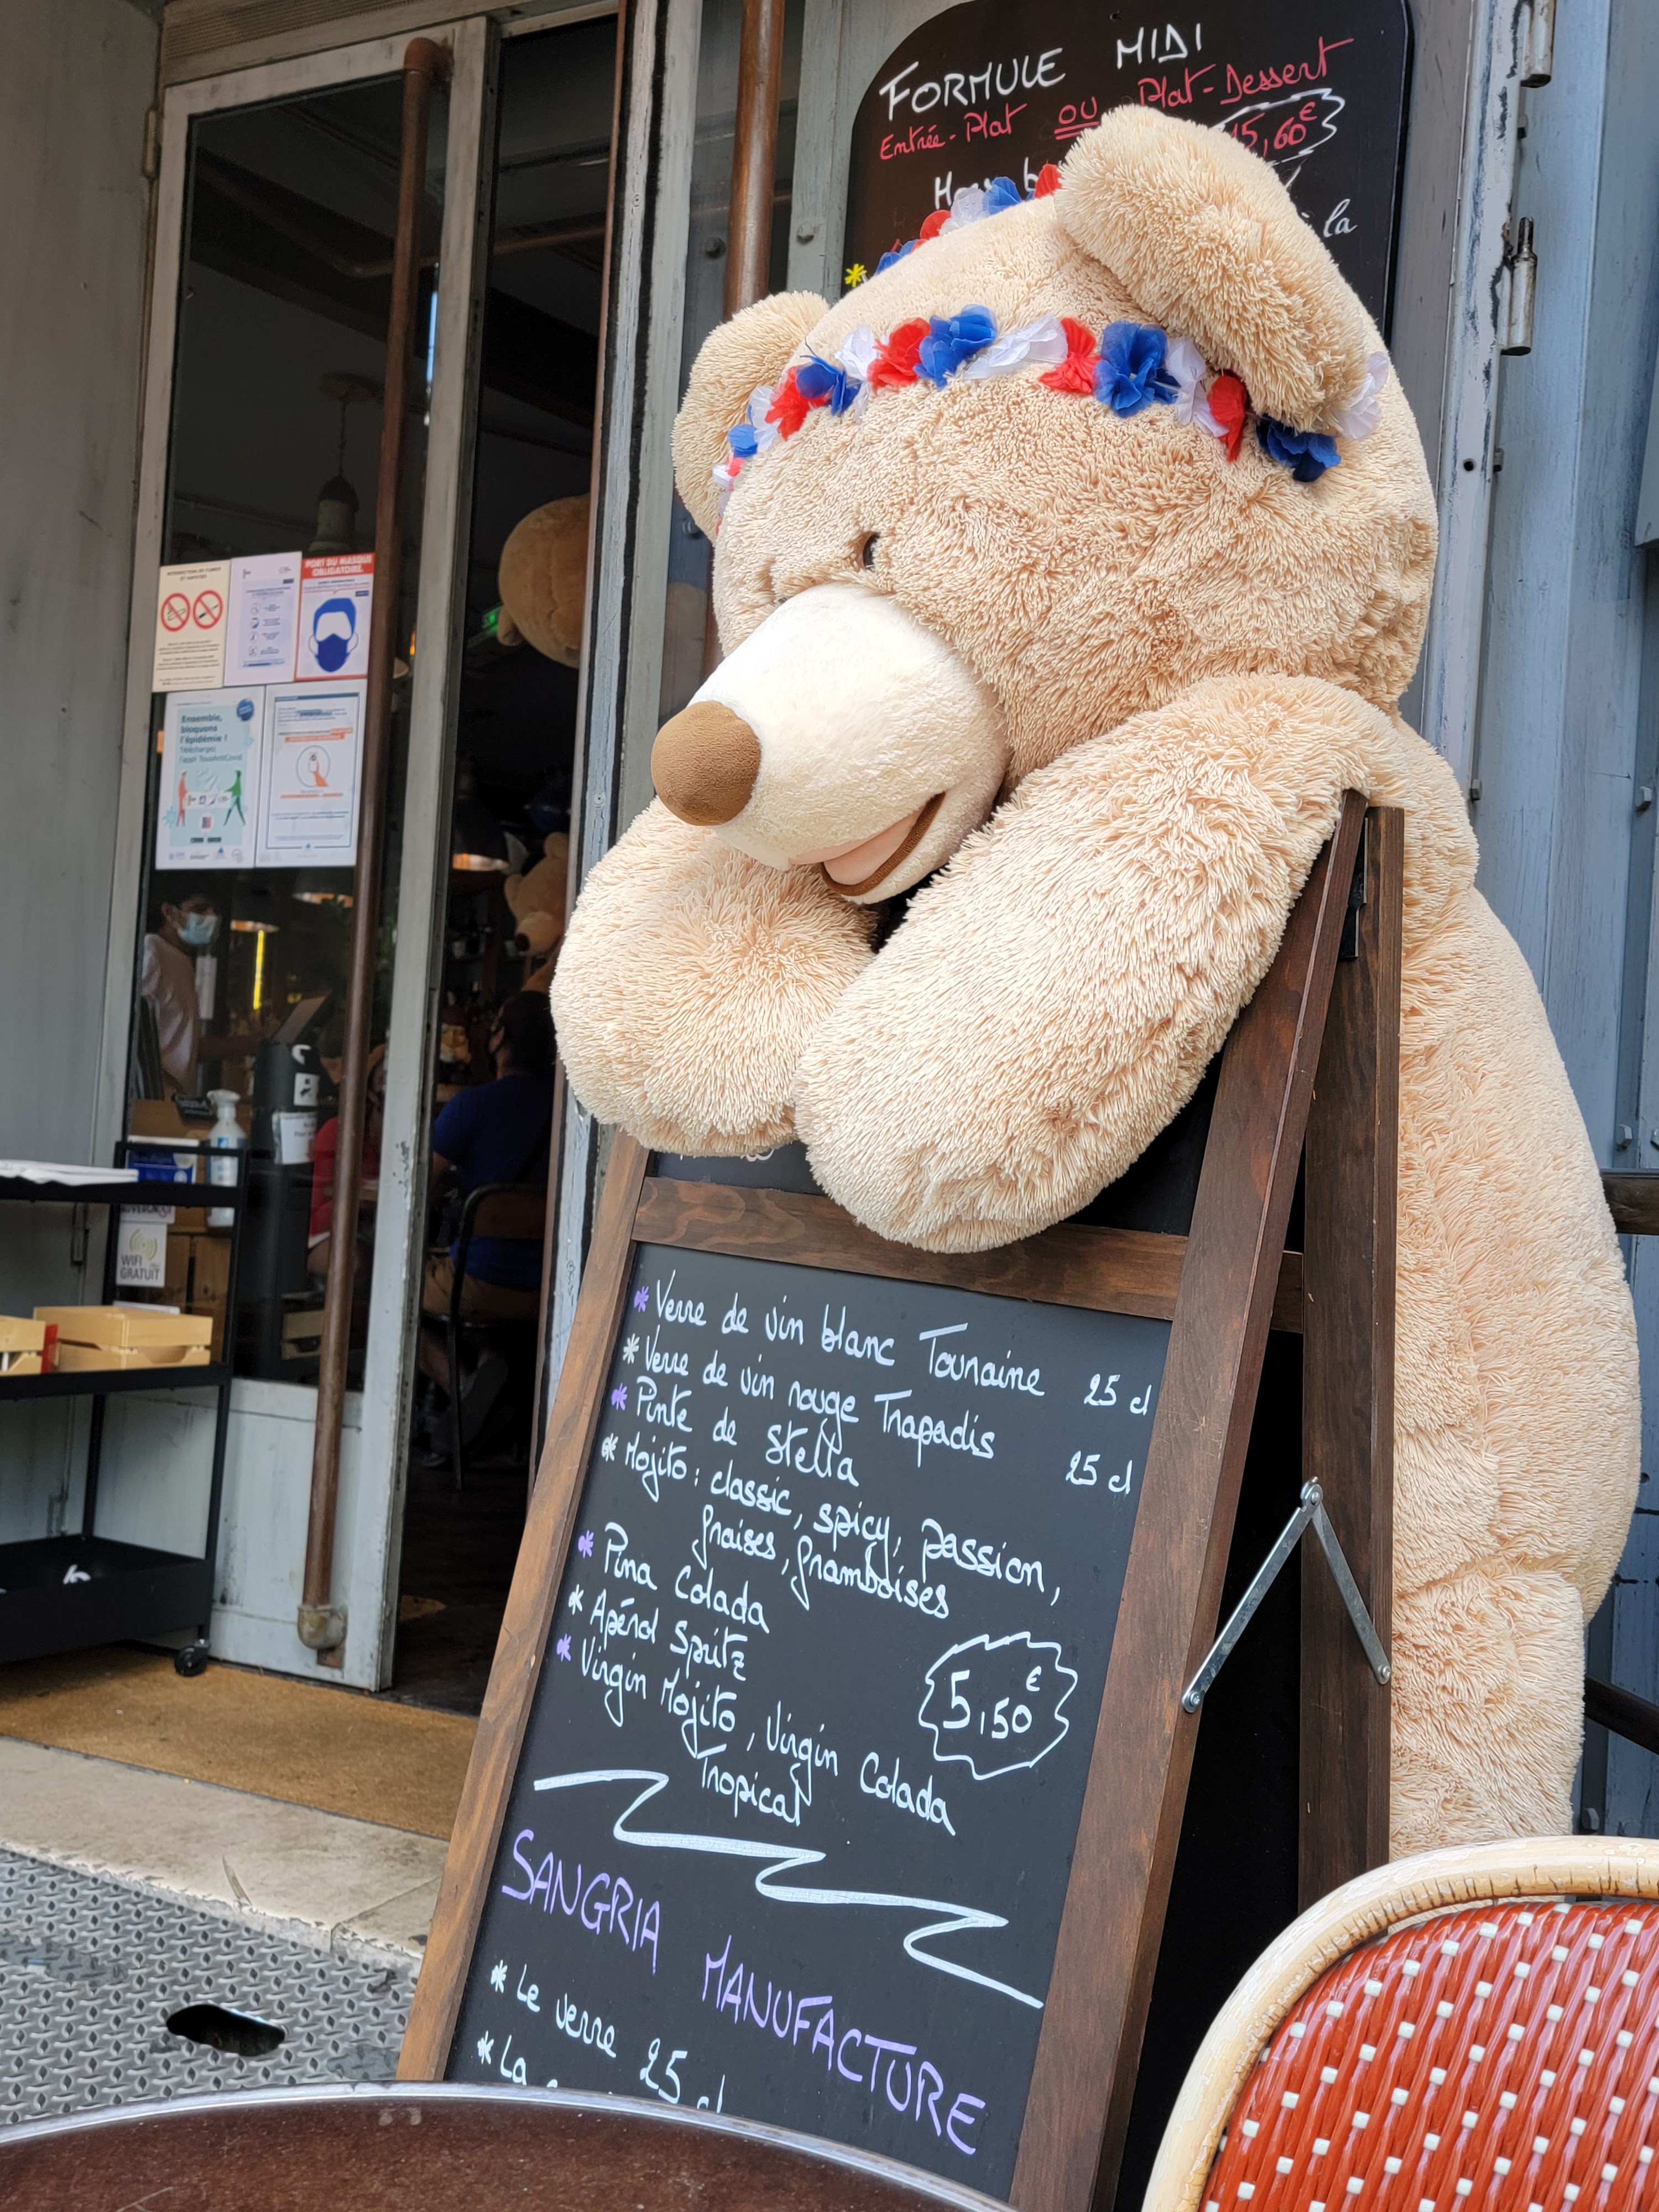 FORMULE MIDI
Entrée-Plat OU Plat-Dessert
15,60€
la
INTERDICTION DE FUMER
ET VAPOTER
PORT DU MASQUE
OBLIGATOIRE.
Ensemble,
bloquons
l'épidémie !
Téléchargez
l'appli TousAntiCovid
WIFI
GRATUIT
* Verre de vin blanc Touraine 25 cl
* Verre de vin rouge Trapadis 25 cl
* Pinte de Stella
* Mojito : classic, spicy, passion,
fraises, framboises
* Pina Colada
* Apérol Spritz
* Virgin Mojito, Virgin Colada
Tropical
5,50€
SANGRIA MANUFACTURE
* Le verre 25 cl
* La